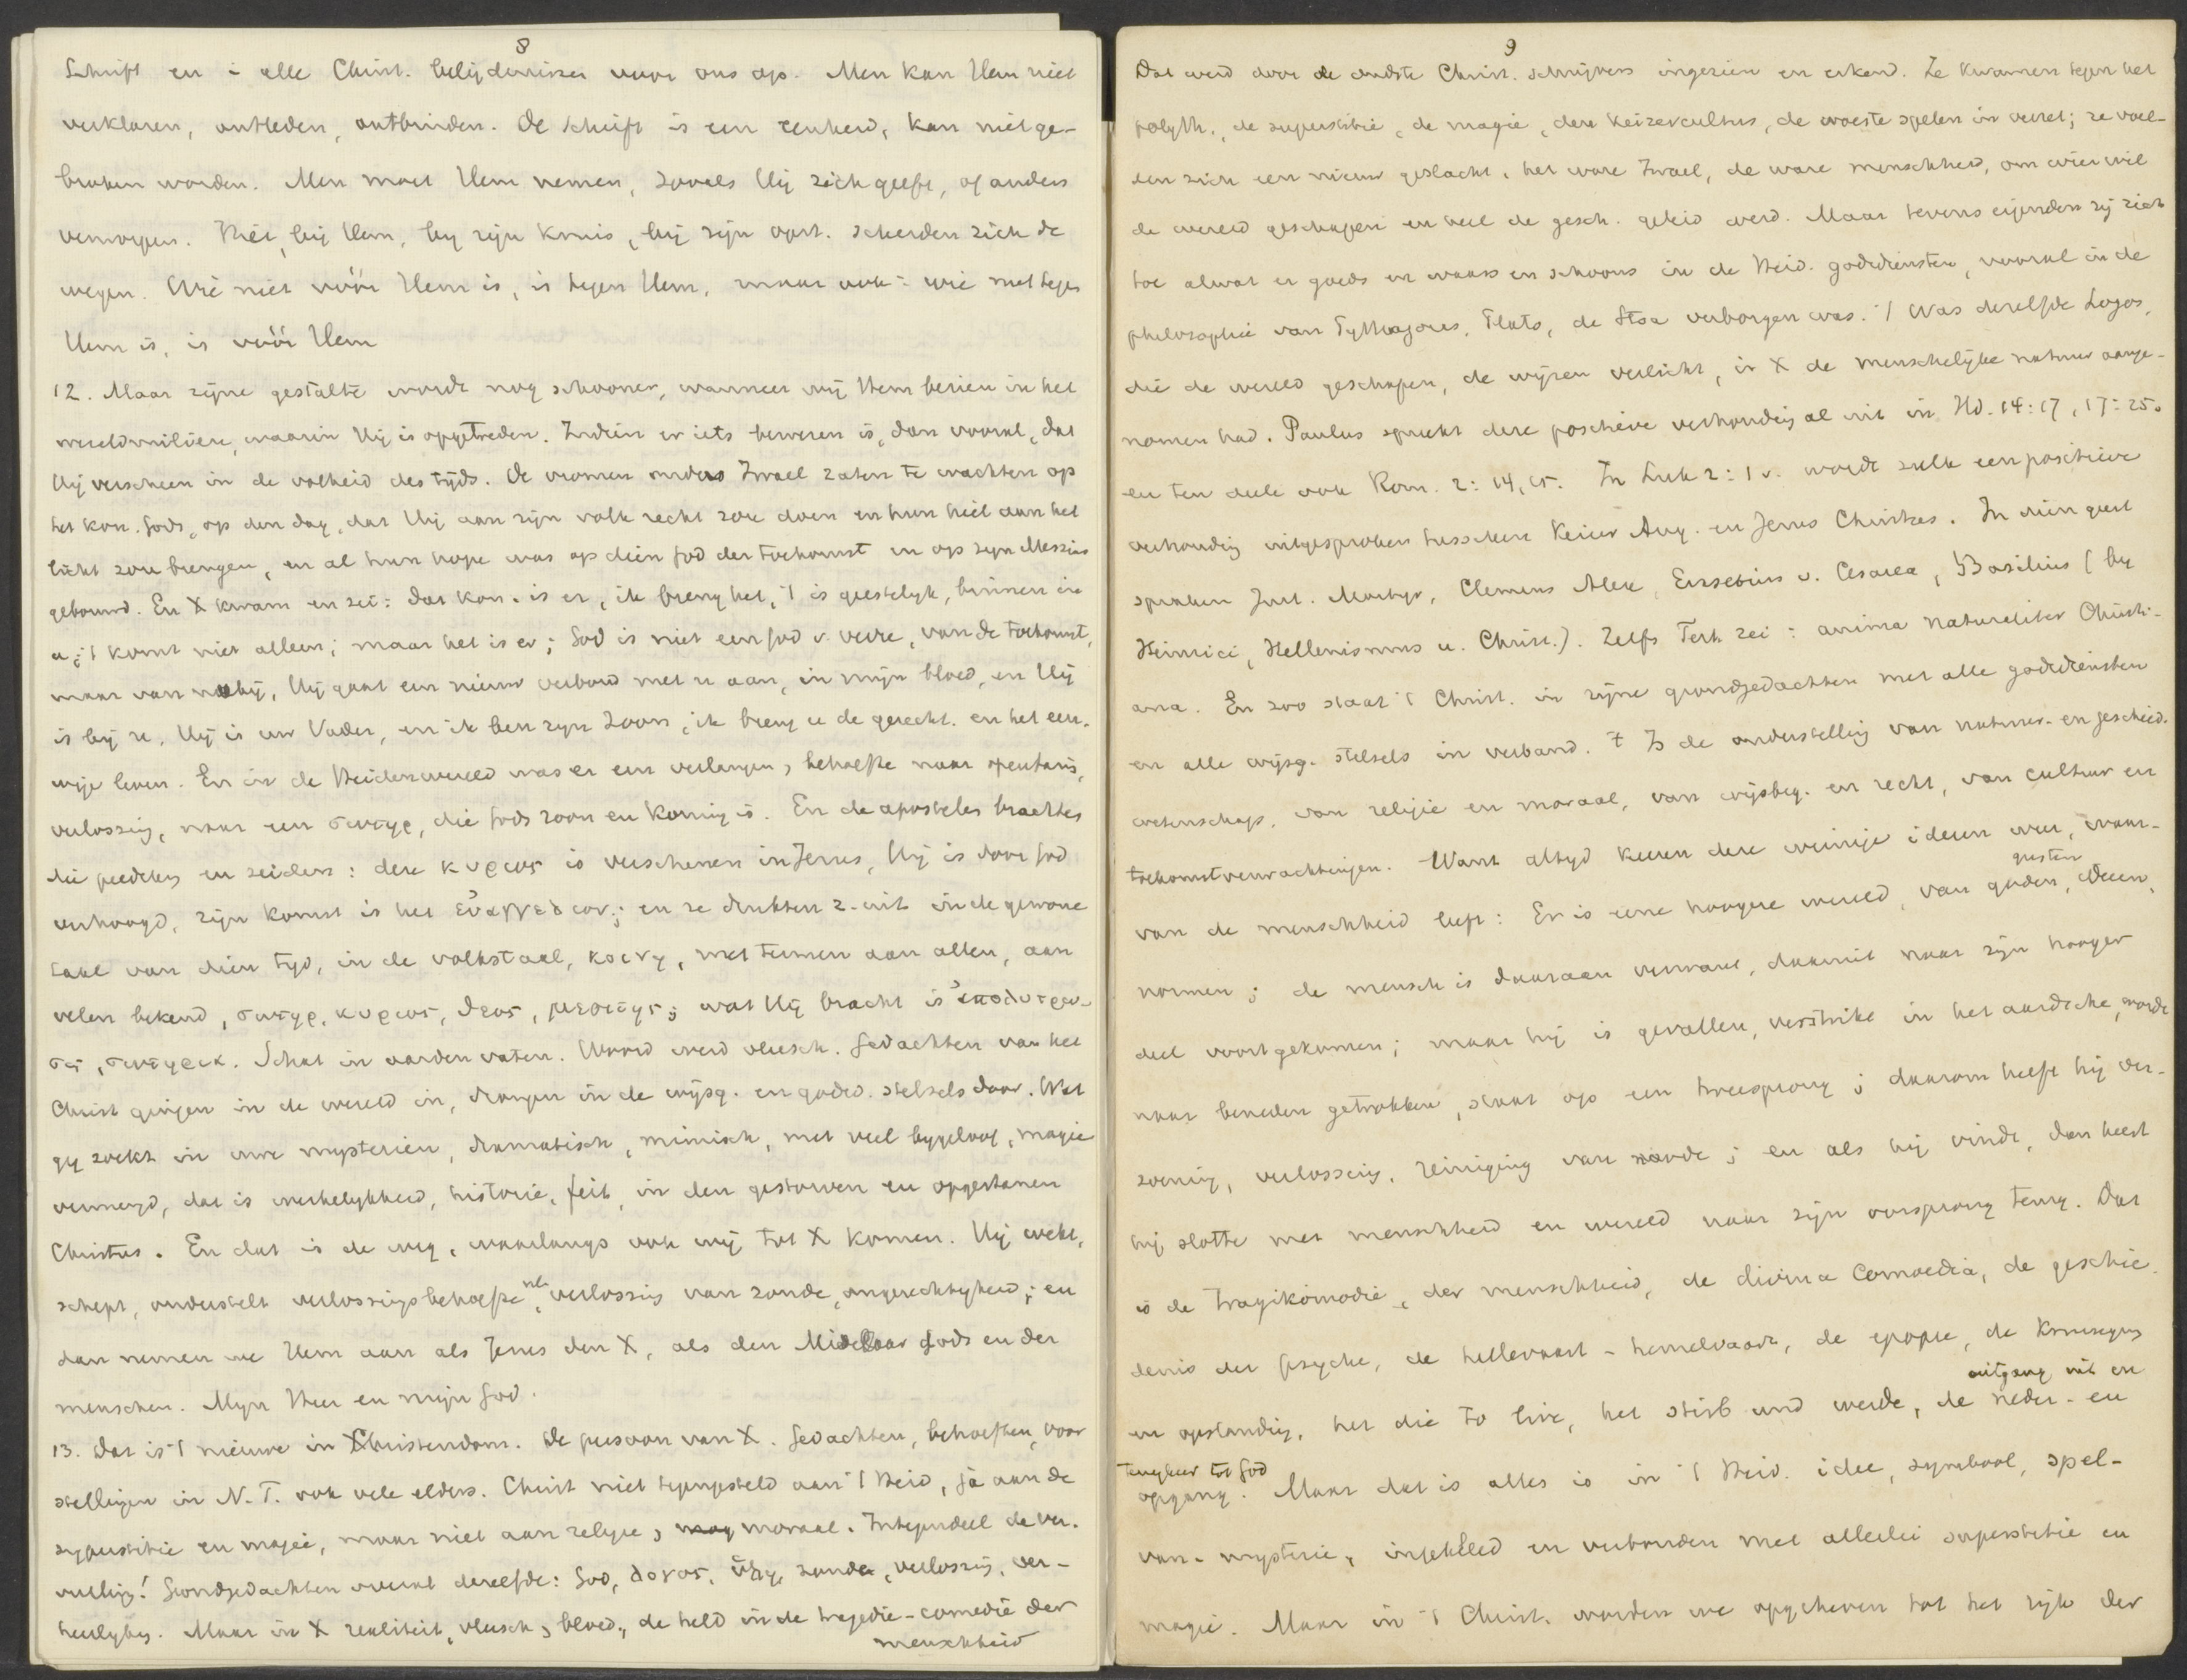 8
Schrift en in alle Christ. belijdenissen voor ons op. Men kan Hem niet
verklaren, ontleden, ontbinden. De schrift is een eenheid, kan niet ge-
broken worden. Men moet Hem nemen, zooals Hij zich geeft, of anders
verwerpen. Hier, bij Hem, bij zijn kruis, bij zijn opst. scheiden zich de
wegen. Wie niet vóór Hem is, is tegen Hem, maar ook: wie niet tegen
Hem is, is vóór Hem
12. Maar zijne gestalte wordt nog schooner, wanneer wij Hem bezien in het
wereldmilieu, waarin Hij is opgetreden. Indien er iets bewezen is, dan vooral, dat
Hij verscheen in de volheid des tijds. De vromen onder Israel zaten te wachten op
het kon. Gods, op den dag, dat Hij aan zijn volk recht zou doen en hun heil aan het
licht zou brengen, en al hun hope was op dien God der toekomst en op zijn Messias
gebouwd. En X kwam en zei: dat kon. is er, ik breng het, 't is geestelijk, binnen in
u; 't komt niet alleen; maar het is er; God is niet een God v. verre, van de toekomst,
maar van nabij, Hij gaat een nieuw verbond met u aan, in mijn bloed, en Hij
is bij u, Hij is uw Vader, en ik ben zijn Zoon, ik breng u de gerecht. en het eeu-
wige leven. En in de Heidenwereld was er een verlangen, behoefte naar openbaring,
verlossing, naar een σωτηρ, die Gods zoon en koning is. En de apostelen brachten
die prediking en zeiden: deze κυριος is verschenen in Jezus, Hij is door God
verhoogd, zijn komst is het εὐαγγελιον; en ze drukten z. uit in de gewone
taal van dien tijd, in de volkstaal, κοινη, met termen aan allen, aan
velen bekend, σωτηρ, κυριος, θεος, μεσιτης; wat Hij bracht is ἀπολυτρω-
σις, σωτηρια. Schat in aarden vaten. Woord werd vleesch. Gedachten van het
Christ gingen in de wereld in, drongen in de wijsg. en godsd. stelsels door. Wat
gij zoekt in uwe mysterien, dramatisch, mimisch, met veel bijgeloof, magie
vermengd, dat is werkelijkheid, historie, feit, in den gestorven en opgestanen
Christus. En dat is de weg, waarlangs ook wij tot X komen. Hij wekt,
schept, onderstelt verlossingsbehoefte, nl. verlossing van zonde, ongerechtigheid; en
dan nemen we Hem aan als Jezus den X, als den Middelaar Gods en der
menschen. Mijn Heer en mijn God.
13. Dat is 't nieuwe in Christendom. De persoon van X. Gedachten, behoeften, voor
stellingen in N.T. ook vele elders. Christ niet tegengesteld aan 't Heid, ja aan de
superstitie en magie, maar niet aan religie, moraal. Integendeel de ver-
vulling! Grondgedachten overal dezelfde: God, λογος, ὑλη, zonde, verlossing, ver-
heerlijking. Maar in X realiteit, vleesch, bloed, de held in de tragedie-comedie der
menschheid
9
Dat werd door de oudste Christ. schrijvers ingezien en erkend. Ze kwamen tegen het
polyth., de superstitie, de magie, den keizercultus, de woeste spelen in verzet; ze voel-
den zich een nieuw geslacht, het ware Israel, de ware menschheid, om wier wil
de wereld geschapen en heel de gesch. geleid werd. Maar tevens eigenden zij zich
toe alwat er goeds en waars en schoons in de Heid. godsdiensten, vooral in de
philosophie van Pythagoras, Plato, de Stoa verborgen was. 't Was dezelfde Logos,
die de wereld geschapen, de wijzen verlicht, in X de menschelijke natuur aange-
nomen had. Paulus spreekt deze positieve verhouding al uit in Hd. 14:17, 17:25.
en ten deele ook Rom. 2:14,15. In Luk 2:1 v. wordt zulk een positieve
verhouding uitgesproken tusschen Keizer Aug. en Jezus Christus. In dien geest
spraken Just. Martyr, Clemens Alex, Eusebius v. Cesarea, Basilius (by
Heinrici, Hellenismus u. Christ.). Zelfs Tert. zei: anima naturaliter Christi-
ana. En zoo staat 't Christ. in zijne grondgedachten met alle godsdiensten
en alle wijsg. stelsels in verband. 't Is de onderstelling van natuur- en geschied.
wetenschap, van religie en moraal, van wijsbeg. en recht, van cultuur en
toekomstverwachtingen. Want altijd keeren deze weinige ideen weer, waar-
van de menschheid leeft: Er is eene hoogere wereld, van goden, geesten, ideen,
normen; de mensch is daaraan verwant, daaruit naar zijn hooger
deel voortgekomen; maar hij is gevallen, verstrikt in het aardsche, wordt
naar beneden getrokken, staat op een tweesprong; daarom heeft hij ver-
zoening, verlossing, reiniging van noode; en als hij vindt, dan keert
hij slotte met menschheid en wereld naar zijn oorsprong terug. Dat
is de tragikomodie, der menschheid, de divina Comoedia, de geschie-
denis der psyche, de hellevaart - hemelvaart, de epopee, de kruisiging
en opstanding, het die to live, het stirb und werde, de neder- en
uitgang uit en
terugkeer tot God
opgang. Maar dat is alles is in 't Heid. idee, symbool, spel-
van-mysterie, ingekleed en verbonden met allerlei superstitie en
magie. Maar in 't Christ. worden we opgeheven tot het rijk der